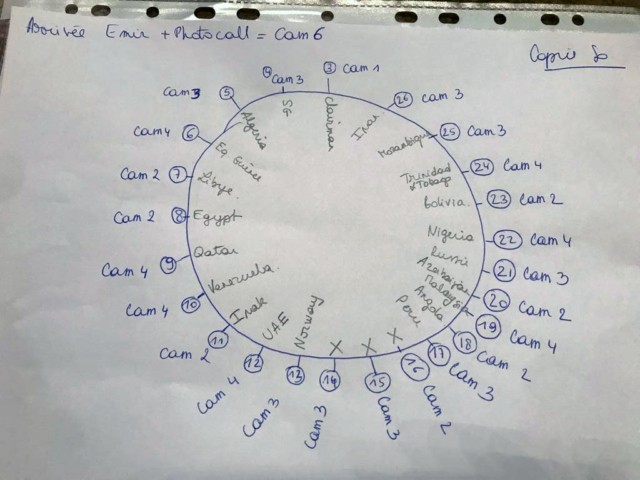 Arrivée Emir + Photocall = Cam 6
③ Cam 1
Chairman
26 Cam 3
Iran
25 Cam 3
Mozambique
24 Cam 4
Trinidad
& Tobago
23 Cam 2
Bolivia.
22 Cam 4
Nigeria
21 Cam 3
Russie
20 Cam 2
Azerbaijan
19 Cam 4
Malaysia
18 Cam 2
Angola
17 Cam 3
Peru
16 Cam 2
X
15 Cam 3
X
14 Cam 3
X
13 Cam 3
Norway
12 Cam 4
UAE
11 Cam 2
Irak
10 Cam 4
Venezuela.
9 Cam 4
Qatar
8 Cam 2
Egypt
7 Cam 2
Libye.
6 Cam 4
Eq Guinée
5 Cam 3
Algeria
4 Cam 3
SG